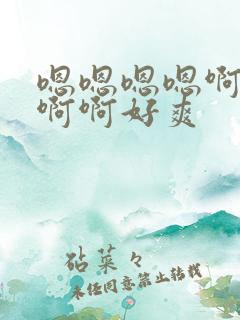 嗯嗯嗯嗯啊
啊啊好爽
砧菜々
未经同意禁止转载